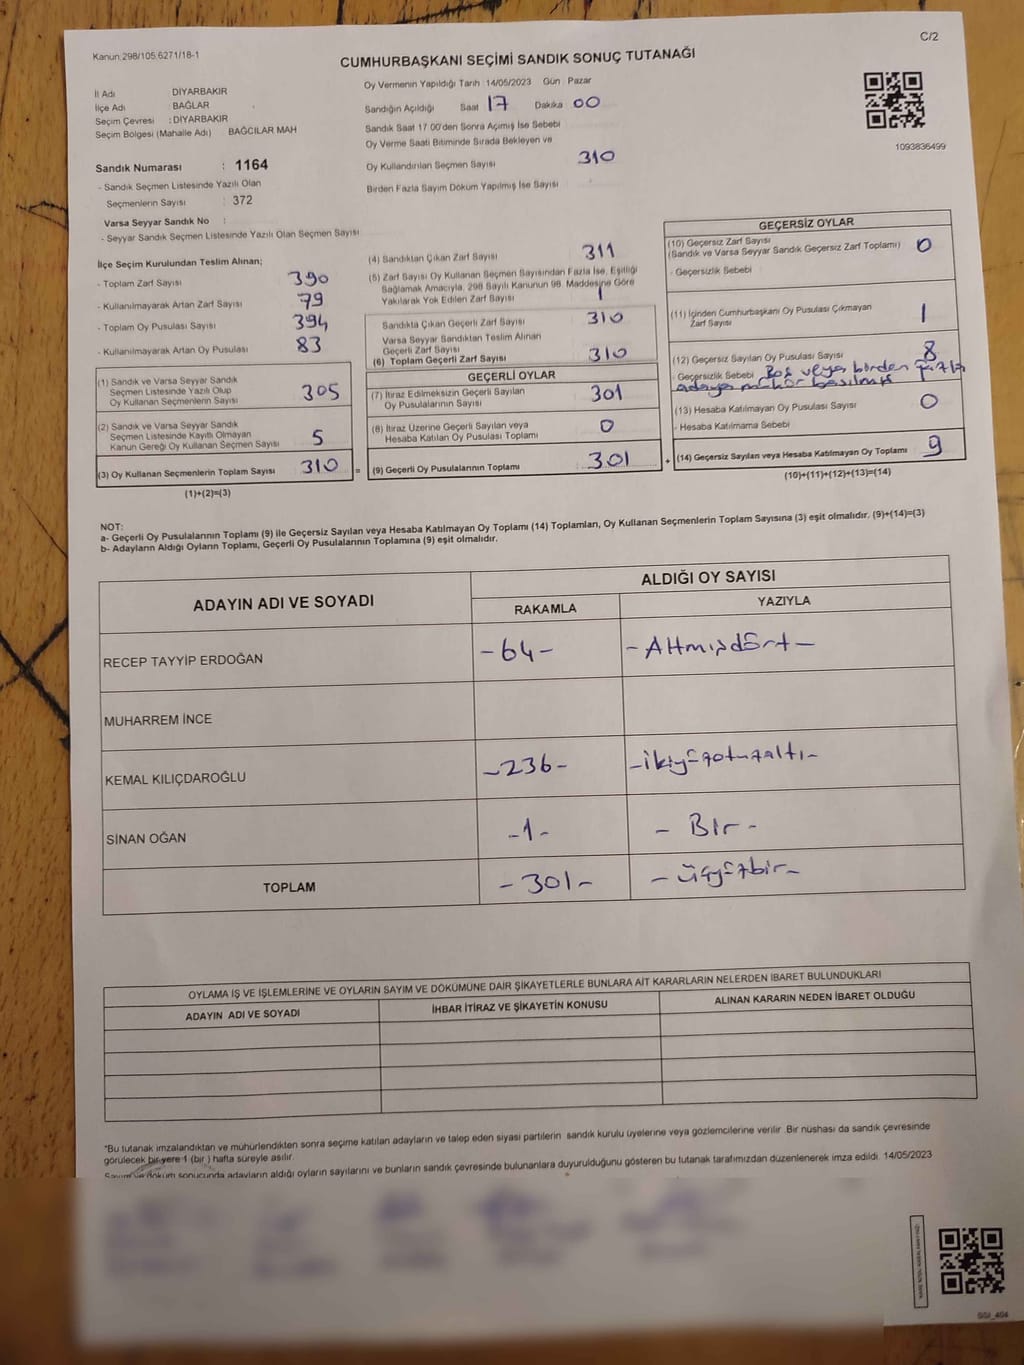 C/2
Kanun:298/105,6271/18-1
CUMHURBAŞKANI SEÇİMİ SANDIK SONUÇ TUTANAĞI
İl Adı : DİYARBAKIR
İlçe Adı : BAĞLAR
Seçim Çevresi : DİYARBAKIR
Seçim Bölgesi (Mahalle Adı) BAĞCILAR MAH
Sandık Numarası : 1164
- Sandık Seçmen Listesinde Yazılı Olan
Seçmenlerin Sayısı : 372
Varsa Seyyar Sandık No :
- Seyyar Sandık Seçmen Listesinde Yazılı Olan Seçmen Sayısı
Oy Vermenin Yapıldığı Tarih 14/05/2023 Gün Pazar
Sandığın Açıldığı Saat 17 Dakika 00
Sandık Saat 17 00'den Sonra Açımış İse Sebebi
Oy Verme Saati Bitiminde Sırada Bekleyen ve
Oy Kullandırılan Seçmen Sayısı 310
Birden Fazla Sayım Döküm Yapılmış İse Sayısı
1093836499
İlçe Seçim Kurulundan Teslim Alınan;
- Toplam Zarf Sayısı 390
- Kullanılmayarak Artan Zarf Sayısı 79
- Toplam Oy Pusulası Sayısı 394
- Kullanılmayarak Artan Oy Pusulası 83
(1) Sandık ve Varsa Seyyar Sandık
Seçmen Listesinde Yazılı Olup
Oy Kullanan Seçmenlerin Sayısı 305
(2) Sandık ve Varsa Seyyar Sandık
Seçmen Listesinde Kayıtlı Olmayan
Kanun Gereği Oy Kullanan Seçmen Sayısı 5
(3) Oy Kullanan Seçmenlerin Toplam Sayısı 310 =
(1)+(2)=(3)
(4) Sandıktan Çıkan Zarf Sayısı 311
(5) Zarf Sayısı Oy Kullanan Seçmen Sayısından Fazla İse, Eşitliği
Sağlamak Amacıyla, 298 Sayılı Kanunun 98. Maddesine Göre
Yakılarak Yok Edilen Zarf Sayısı 1
Sandıkta Çıkan Geçerli Zarf Sayısı 310
Varsa Seyyar Sandıktan Teslim Alınan
Geçerli Zarf Sayısı
(6) Toplam Geçerli Zarf Sayısı 310
GEÇERLİ OYLAR
(7) İtiraz Edilmeksizin Geçerli Sayılan
Oy Pusulalarının Sayısı 301
(8) İtiraz Üzerine Geçerli Sayılan veya
Hesaba Katılan Oy Pusulası Toplamı 0
(9) Geçerli Oy Pusulalarının Toplamı 301 +
GEÇERSİZ OYLAR
(10) Geçersiz Zarf Sayısı
(Sandık ve Varsa Seyyar Sandık Geçersiz Zarf Toplamı) 0
- Geçersizlik Sebebi
(11) İçinden Cumhurbaşkanı Oy Pusulası Çıkmayan
Zarf Sayısı 1
(12) Geçersiz Sayılan Oy Pusulası Sayısı 8
- Geçersizlik Sebebi Boş veya birden fazla
adaya mühür basılmış
(13) Hesaba Katılmayan Oy Pusulası Sayısı 0
- Hesaba Katılmama Sebebi
(14) Geçersiz Sayılan veya Hesaba Katılmayan Oy Toplamı 9
(10)+(11)+(12)+(13)=(14)
NOT:
a- Geçerli Oy Pusulalarının Toplamı (9) ile Geçersiz Sayılan veya Hesaba Katılmayan Oy Toplamı (14) Toplamları, Oy Kullanan Seçmenlerin Toplam Sayısına (3) eşit olmalıdır. (9)+(14)=(3)
b- Adayların Aldığı Oyların Toplamı, Geçerli Oy Pusulalarının Toplamına (9) eşit olmalıdır.
ADAYIN ADI VE SOYADI ALDIĞI OY SAYISI
RAKAMLA YAZIYLA
RECEP TAYYİP ERDOĞAN -64- -Altmışdört-
MUHARREM İNCE
KEMAL KILIÇDAROĞLU -236- -ikiyüzotuzaltı-
SİNAN OĞAN -1- - Bir -
TOPLAM -301- -üçyüzbir-
OYLAMA İŞ VE İŞLEMLERİNE VE OYLARIN SAYIM VE DÖKÜMÜNE DAİR ŞİKAYETLERLE BUNLARA AİT KARARLARIN NELERDEN İBARET BULUNDUKLARI
ADAYIN ADI VE SOYADI İHBAR İTİRAZ VE ŞİKAYETİN KONUSU ALINAN KARARIN NEDEN İBARET OLDUĞU
*Bu tutanak imzalandıktan ve mühürlendikten sonra seçime katılan adayların ve talep eden siyasi partilerin sandık kurulu üyelerine veya gözlemcilerine verilir. Bir nüshası da sandık çevresinde
görülecek bir yere 1 (bir ) hafta süreyle asılır.
Sayım ve döküm sonucunda adayların aldığı oyların sayılarını ve bunların sandık çevresinde bulunanlara duyurulduğunu gösteren bu tutanak tarafımızdan düzenlenerek imza edildi. 14/05/2023